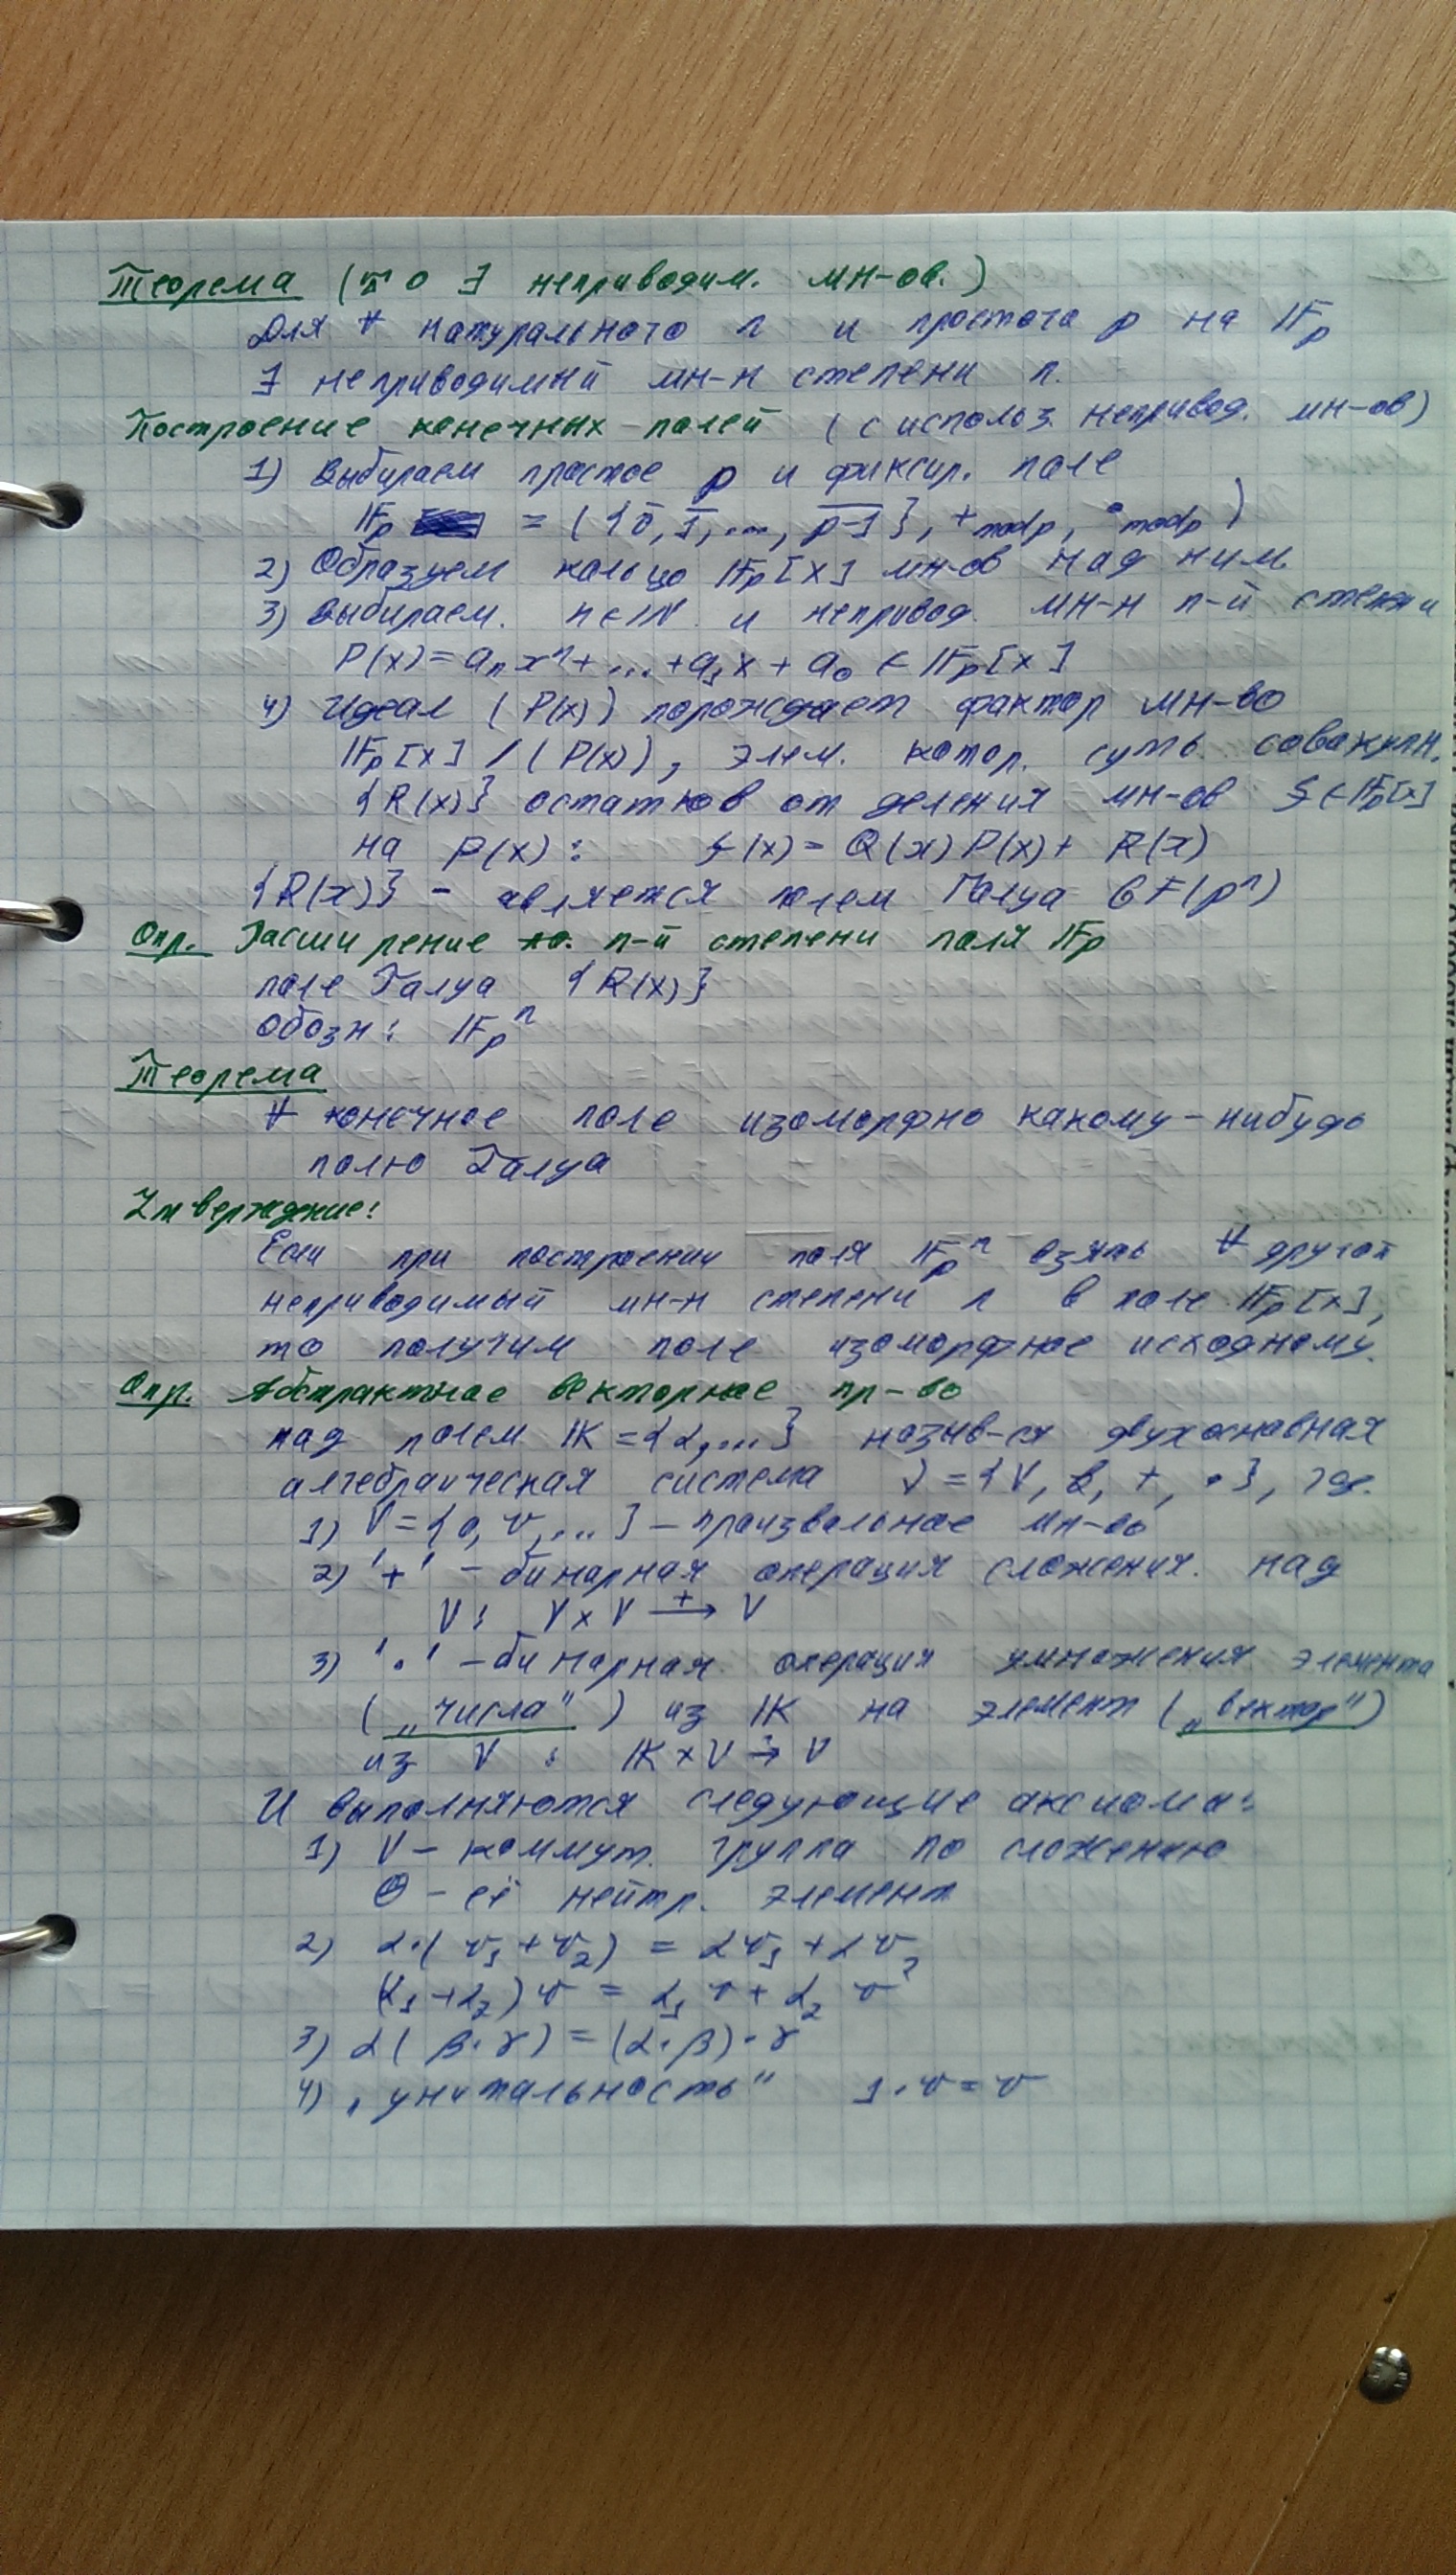 Теорема (Т о ∃ неприводим. мн-ов.)
Для ∀ натурального n и простого p на 𝔽p
∃ неприводимый мн-н степени n.
Построение конечных полей (с использ. непривод. мн-ов)
1) Выбираем простое p и фиксир. поле
𝔽p = ({0̅, 1̅, ..., p-1}, +mod p, •mod p)
2) Образуем кольцо 𝔽p[x] мн-ов над ним.
3) Выбираем. n∈ℕ и непривод. мн-н n-й степени
P(x) = aₙxⁿ + ... + a₁x + a₀ ∈ 𝔽p[x]
4) Идеал (P(x)) порождает фактор мн-во
𝔽p[x] / (P(x)), элем. котор. суть совокупн.
{R(x)} остатков от деления мн-ов f∈𝔽p[x]
на P(x): f(x) = Q(x)P(x) + R(x)
{R(x)} - является полем Галуа GF(pⁿ)
Опр. Расширение n-й степени поля 𝔽p
поле Галуа {R(x)}
обозн: 𝔽pⁿ
Теорема
∀ конечное поле изоморфно какому-нибудь
полю Галуа
Утверждение:
Если при построении поля 𝔽pⁿ взять ∀ другой
неприводимый мн-н степени n в поле 𝔽p[x],
то получим поле изоморфное исходному.
Опр. Абстрактное векторное пр-во
над полем 𝕂 = {α, ...} назыв-ся двухосновная
алгебраическая система = {V, +, •}, где.
1) V = {0, v, ...} - произвольное мн-во
2) '+' - бинарная операция сложения. над
V: V × V →+ V
3) '•' - бинарная операция умножения элемента
(„числа") из 𝕂 на элемент („вектор")
из V : 𝕂 × V → V
И выполняются следующие аксиомы:
1) V - коммут. группа по сложению
Θ - её нейтр. элемент
2) α·(v₁ + v₂) = αv₁ + αv₂
(α₁ + α₂)v = α₁v + α₂v
3) α(β·γ) = (α·β)·γ
4) „унитальность" 1·v = v